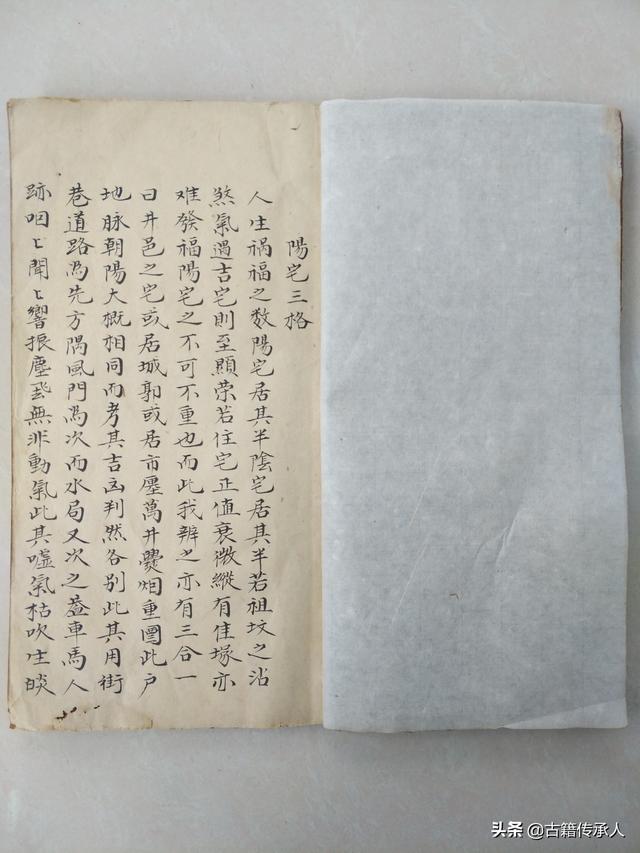 陽宅三格
人生祸福之数陽宅居其半陰宅居其半若祖坟之沾
煞氣遇吉宅則至顯荣若住宅正值衰微縱有佳塚亦
难發福陽宅之不可不重也而此我辨之亦有三合一
曰井邑之宅或居城郭或居市廛萬井爨烟重圍此户
地脉朝陽大概相同而考其吉凶判然各别此其用街
巷道路爲先方隅風門爲次而水局又次之葢車馬人
跡咽〻闻〻響振塵飛無非動氣此其噓氣枯吹生啖
头条 @古籍传承人